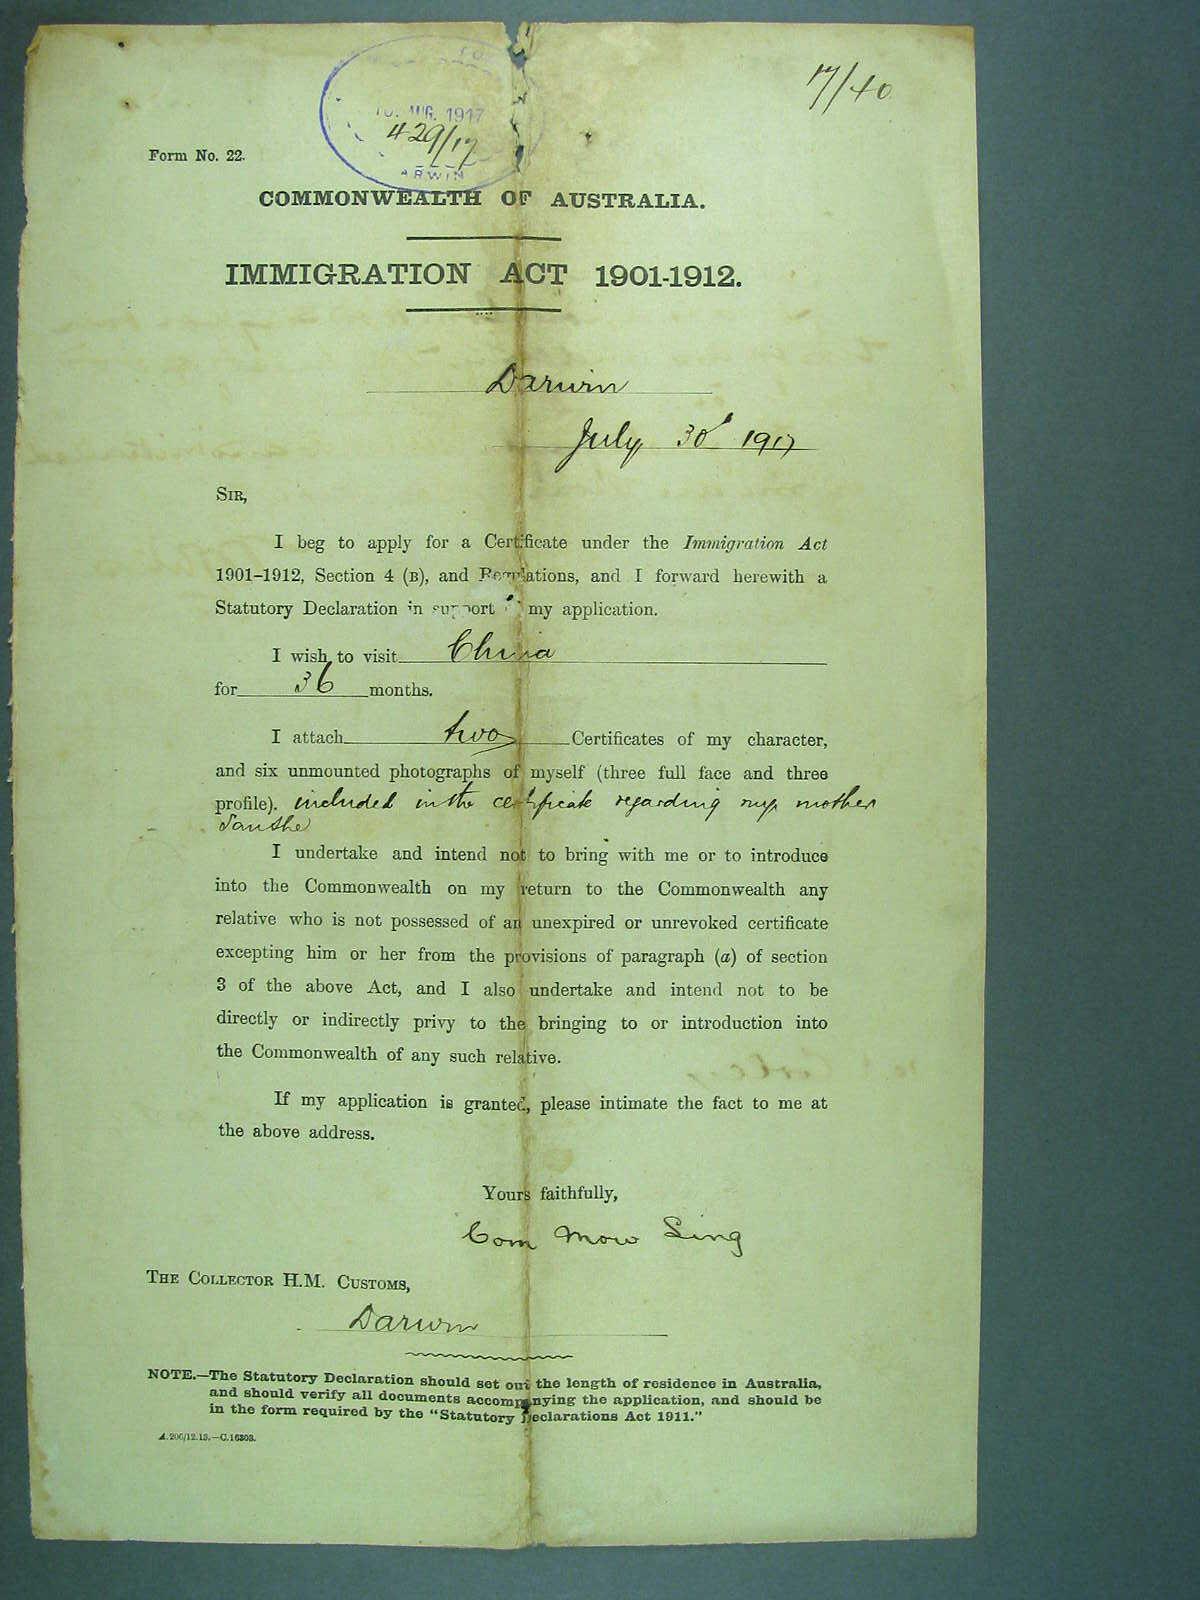 17/40
10. AUG. 1917
429/17
ARWIN
Form No. 22.
COMMONWEALTH OF AUSTRALIA.
IMMIGRATION ACT 1901-1912.
Darwin
July 30d 1917
SIR,
I beg to apply for a Certificate under the Immigration Act
1901–1912, Section 4 (B), and Regulations, and I forward herewith a
Statutory Declaration in support of my application.
I wish to visit China
for 36 months.
I attach two Certificates of my character,
and six unmounted photographs of myself (three full face and three
profile). included in the certificate regarding my mother
I undertake and intend not to bring with me or to introduce
into the Commonwealth on my return to the Commonwealth any
relative who is not possessed of an unexpired or unrevoked certificate
excepting him or her from the provisions of paragraph (a) of section
3 of the above Act, and I also undertake and intend not to be
directly or indirectly privy to the bringing to or introduction into
the Commonwealth of any such relative.
If my application is granted, please intimate the fact to me at
the above address.
Yours faithfully,
Com Mow Sing
THE COLLECTOR H.M. CUSTOMS,
Darwin
NOTE.—The Statutory Declaration should set out the length of residence in Australia,
and should verify all documents accompanying the application, and should be
in the form required by the "Statutory Declarations Act 1911."
A.206/12.13.—C.16303.